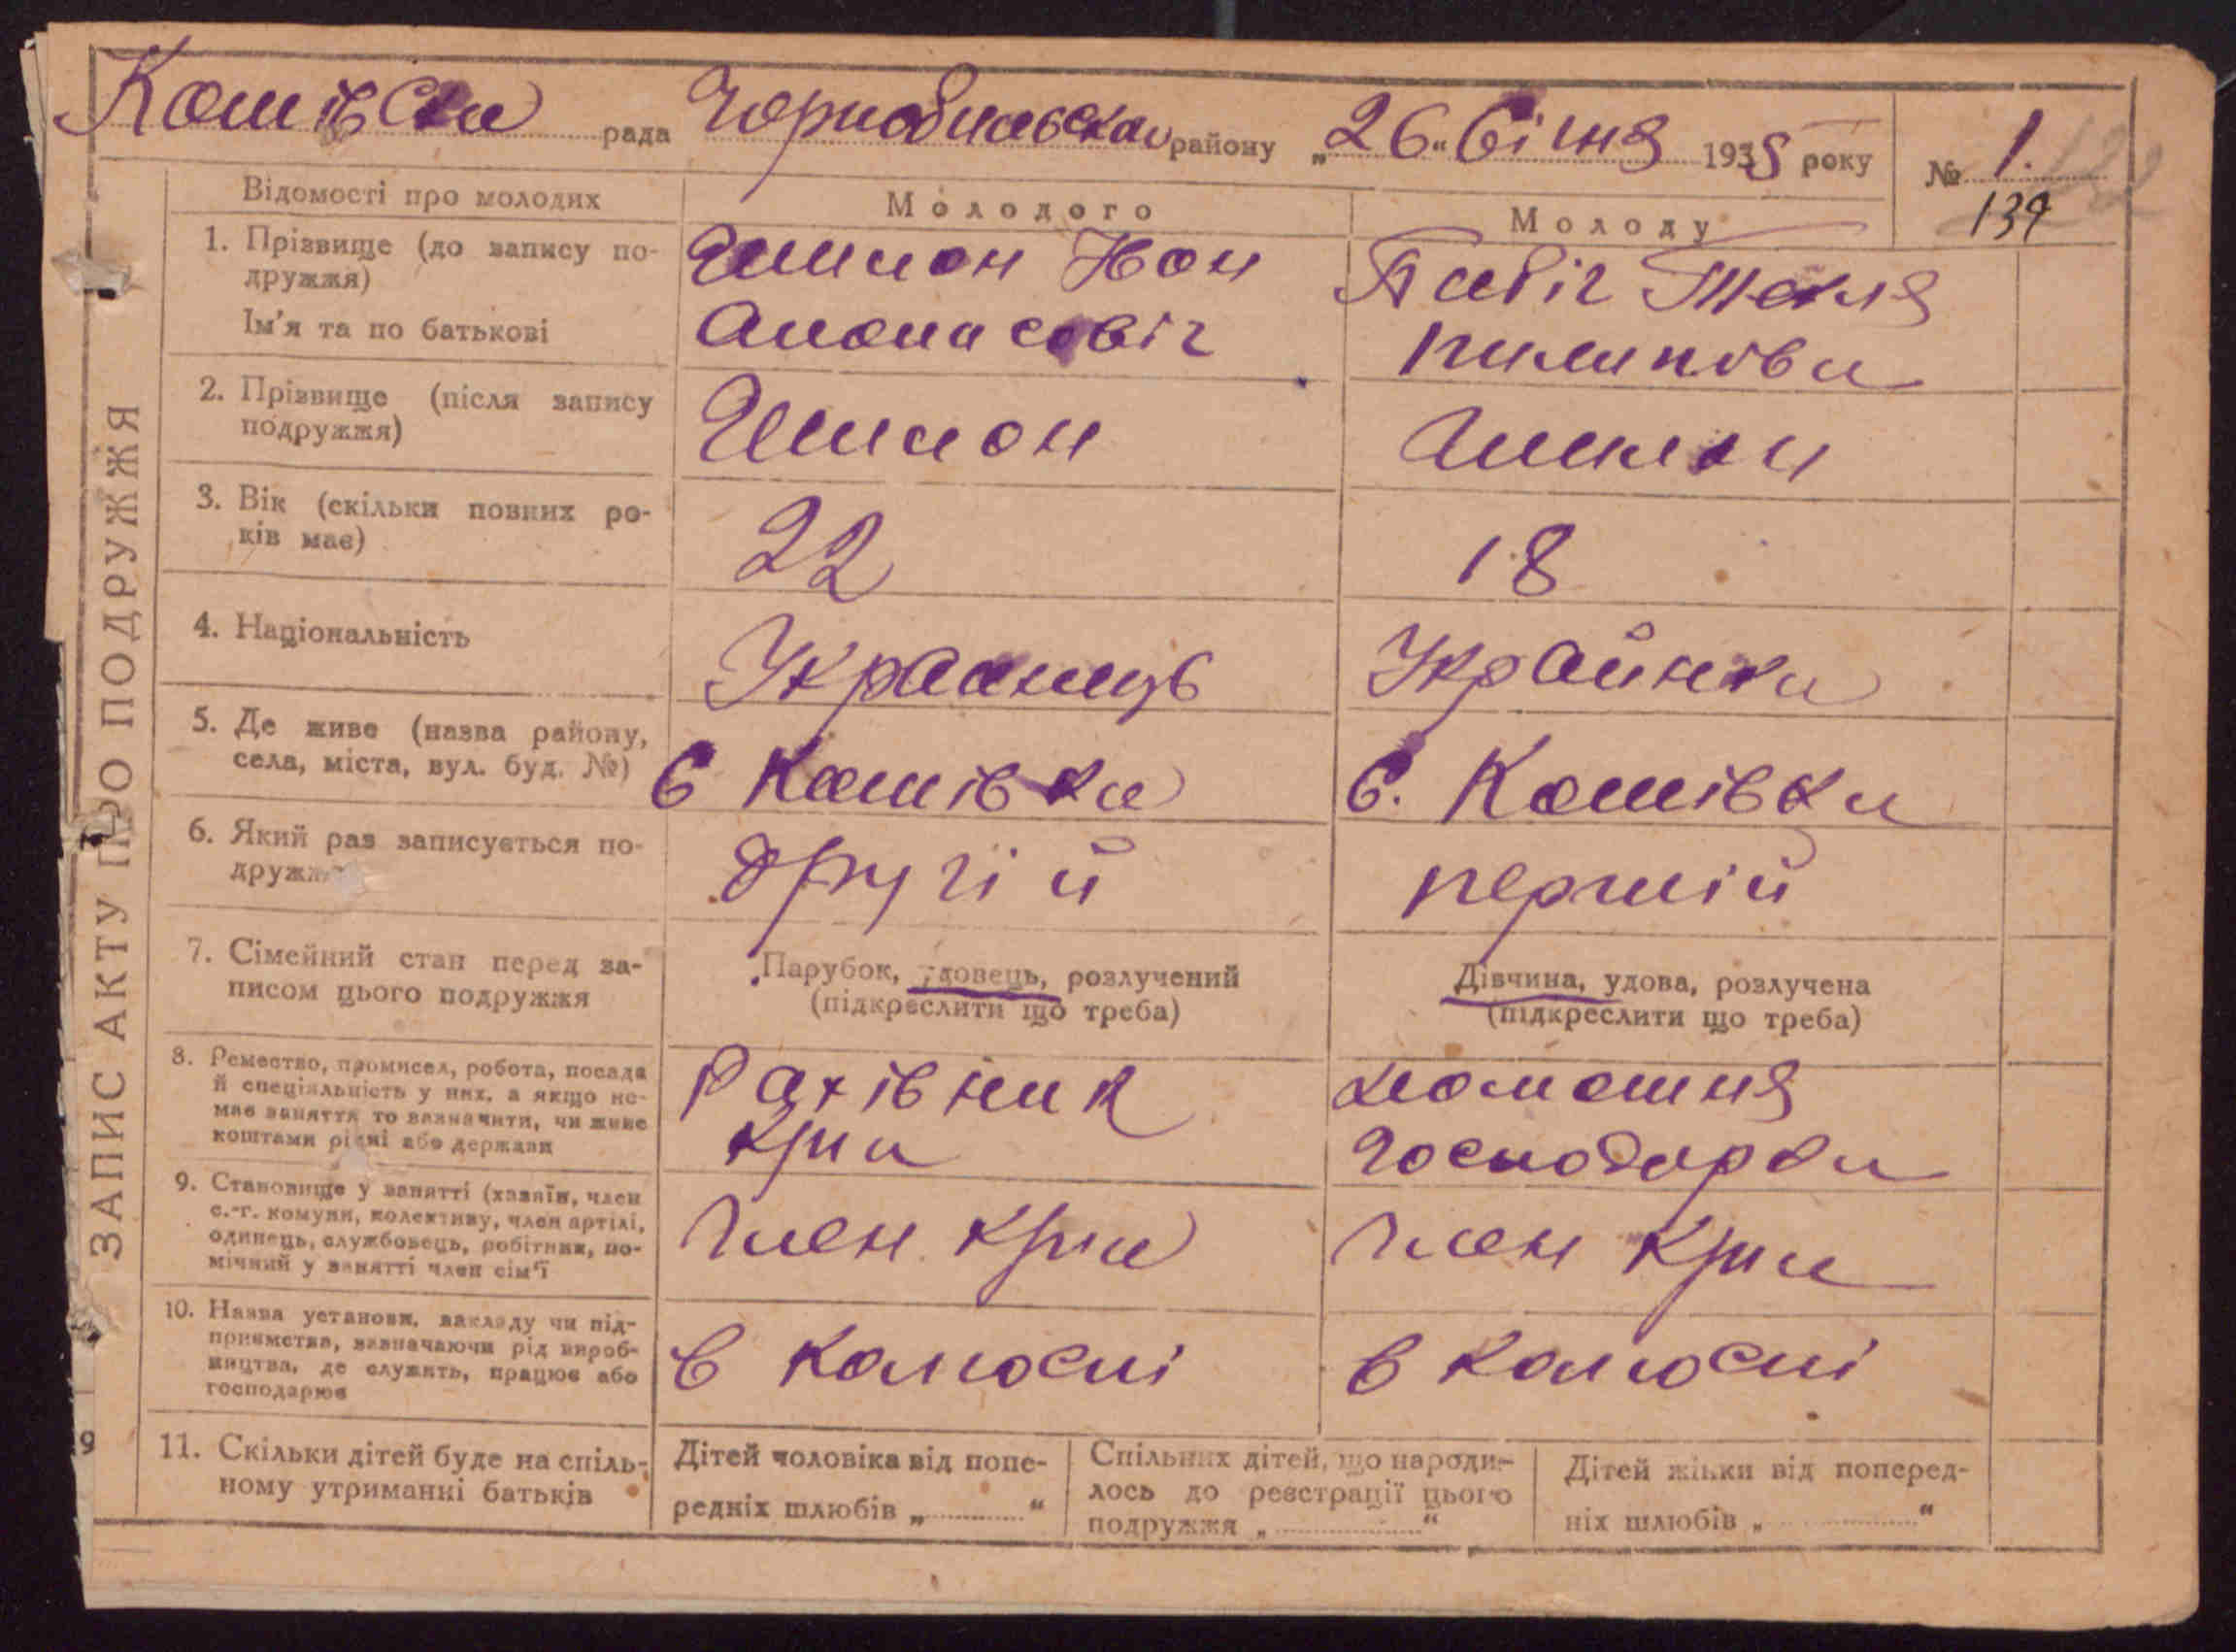 Кошівска рада Чорнобильская району „26“ Січня 1935 року № 1.
139
Відомості про молодих
Молодого
Молоду
1. Прізвище (до запису по-
дружжя)
Ім'я та по батькові
Апанасовіч
Бабіч Текля
Пилипівна
2. Прізвище (після запису
подружжя)
3. Вік (скільки повних ро-
ків має)
22
18
4. Національність
Украаинць
Украйнка
5. Де живе (назва району,
села, міста, вул. буд. №)
С Кошівка
С. Кошівка
6. Який раз записується по-
дружжя
другій
першій
7. Сімейний стан перед за-
писом цього подружжя
Парубок, удовець, розлучений
(підкреслити що треба)
Дівчина, удова, розлучена
(підкреслити що треба)
8. Ремество, промисел, робота, посада
й спеціяльність у них, а якщо не-
має заняття то зазначити, чи живе
коштами рідні або держави
Рахівник
домошня
господарка
9. Становище у занятті (хазяїн, член
с.-г. комуни, колективу, член артілі,
одинець, службовець, робітник, по-
мічний у занятті член сім'ї
Член
Член
10. Назва установи, закладу чи під-
приємства, зазначаючи рід вироб-
ництва, де служить, працює або
господарює
в колгоспі
в колгоспі
11. Скільки дітей буде на спіль-
ному утриманні батьків
Дітей чоловіка від попе-
редніх шлюбів „ “
Спільних дітей, що народи-
лось до реєстрації цього
подружжя „ “
Дітей жінки від поперед-
ніх шлюбів „ “
ЗАПИС АКТУ ПРО ПОДРУЖЖЯ